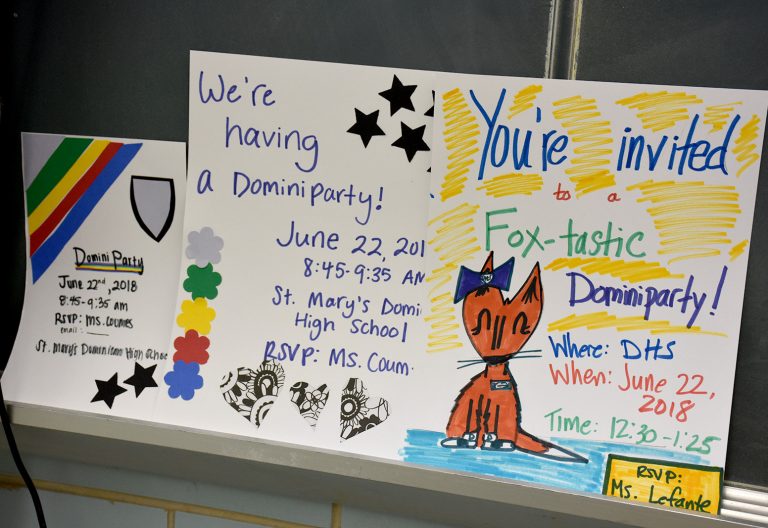 Domini Party
June 22nd, 2018
8:45-9:35 am
RSVP: Ms. Coumes
email:
St. Mary's Dominican High School
We're
having
a Dominiparty!
June 22, 201
8:45-9:35 AM
St. Mary's Domi
High School
RSVP: Ms. Coum
You're invited
to a
Fox-tastic
Dominiparty!
Where: DHS
When: June 22,
2018
Time: 12:30-1:25
RSVP:
Ms. Lefante